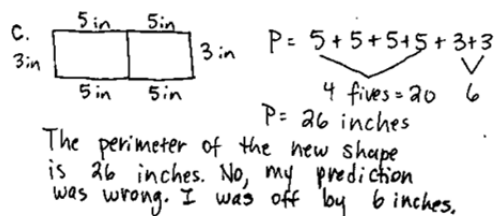 C.
5 in 5 in
3 in 3 in
5 in 5 in
P = 5 + 5 + 5 + 5 + 3 + 3
4 fives = 20 6
P = 26 inches
The perimeter of the new shape
is 26 inches. No, my prediction
was wrong. I was off by 6 inches.